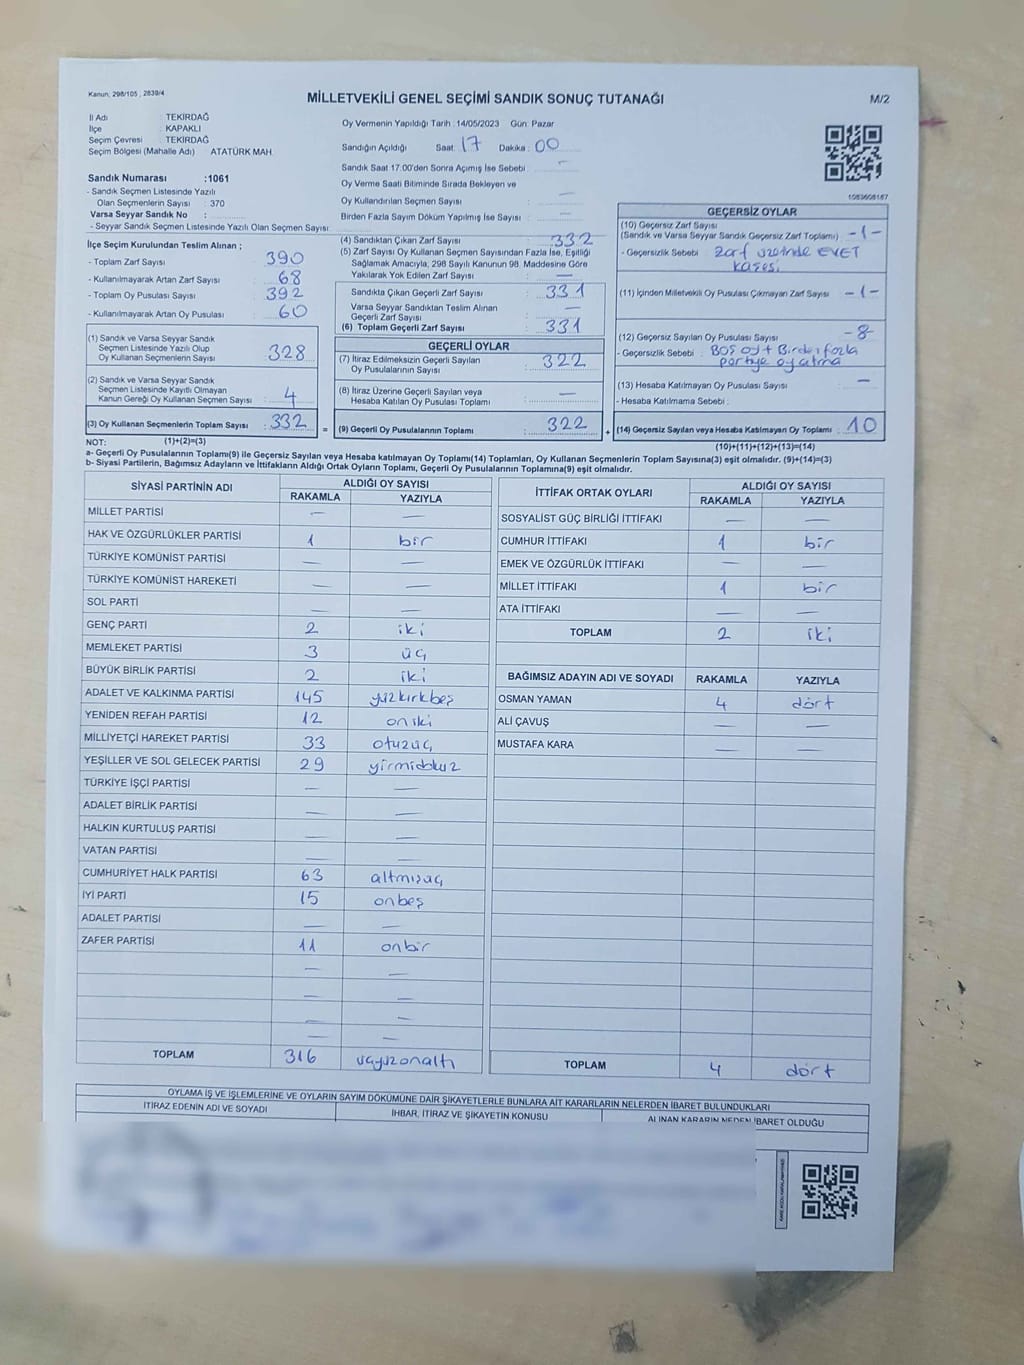 Kanun; 298/105 ; 2839/4
MİLLETVEKİLİ GENEL SEÇİMİ SANDIK SONUÇ TUTANAĞI
M/2
İl Adı : TEKİRDAĞ
İlçe : KAPAKLI
Seçim Çevresi : TEKİRDAĞ
Seçim Bölgesi (Mahalle Adı) ATATÜRK MAH.
Sandık Numarası :1061
- Sandık Seçmen Listesinde Yazılı
Olan Seçmenlerin Sayısı : 370
Varsa Seyyar Sandık No :
- Seyyar Sandık Seçmen Listesinde Yazılı Olan Seçmen Sayısı:
Oy Vermenin Yapıldığı Tarih :14/05/2023 Gün: Pazar
Sandığın Açıldığı Saat: 17 Dakika: 00
Sandık Saat 17.00'den Sonra Açımış İse Sebebi : —
Oy Verme Saati Bitiminde Sırada Bekleyen ve
Oy Kullandırılan Seçmen Sayısı : —
Birden Fazla Sayım Döküm Yapılmış İse Sayısı : —
1083608187
İlçe Seçim Kurulundan Teslim Alınan ;
- Toplam Zarf Sayısı : 390
- Kullanılmayarak Artan Zarf Sayısı : 68
- Toplam Oy Pusulası Sayısı : 392
- Kullanılmayarak Artan Oy Pusulası : 60
(1) Sandık ve Varsa Seyyar Sandık
Seçmen Listesinde Yazılı Olup
Oy Kullanan Seçmenlerin Sayısı : 328
(2) Sandık ve Varsa Seyyar Sandık
Seçmen Listesinde Kayıtlı Olmayan
Kanun Gereği Oy Kullanan Seçmen Sayısı : 4
(3) Oy Kullanan Seçmenlerin Toplam Sayısı : 332 =
(4) Sandıktan Çıkan Zarf Sayısı : 332
(5) Zarf Sayısı Oy Kullanan Seçmen Sayısından Fazla İse, Eşitliği
Sağlamak Amacıyla, 298 Sayılı Kanunun 98. Maddesine Göre
Yakılarak Yok Edilen Zarf Sayısı : —
Sandıkta Çıkan Geçerli Zarf Sayısı : 331
Varsa Seyyar Sandıktan Teslim Alınan
Geçerli Zarf Sayısı : —
(6) Toplam Geçerli Zarf Sayısı : 331
GEÇERLİ OYLAR
(7) İtiraz Edilmeksizin Geçerli Sayılan
Oy Pusulasının Sayısı : 322
(8) İtiraz Üzerine Geçerli Sayılan veya
Hesaba Katılan Oy Pusulası Toplamı : —
(9) Geçerli Oy Pusulalarının Toplamı : 322 +
GEÇERSİZ OYLAR
(10) Geçersiz Zarf Sayısı
(Sandık ve Varsa Seyyar Sandık Geçersiz Zarf Toplamı) : -1-
- Geçersizlik Sebebi : Zarf üzerinde EVET
kaşesi
(11) İçinden Milletvekili Oy Pusulası Çıkmayan Zarf Sayısı : -1-
(12) Geçersiz Sayılan Oy Pusulası Sayısı : -8-
- Geçersizlik Sebebi : BOŞ oy + Birden fazla
partiye oy atma
(13) Hesaba Katılmayan Oy Pusulası Sayısı : —
- Hesaba Katılmama Sebebi :
(14) Geçersiz Sayılan veya Hesaba Katılmayan Oy Toplamı : 10
NOT: (1)+(2)=(3) (10)+(11)+(12)+(13)=(14)
a- Geçerli Oy Pusulalarının Toplamı(9) ile Geçersiz Sayılan veya Hesaba katılmayan Oy Toplamı(14) Toplamları, Oy Kullanan Seçmenlerin Toplam Sayısına(3) eşit olmalıdır. (9)+(14)=(3)
b- Siyasi Partilerin, Bağımsız Adayların ve İttifakların Aldığı Ortak Oyların Toplamı, Geçerli Oy Pusulalarının Toplamına(9) eşit olmalıdır.
SİYASİ PARTİNİN ADI ALDIĞI OY SAYISI
RAKAMLA YAZIYLA
MİLLET PARTİSİ — —
HAK VE ÖZGÜRLÜKLER PARTİSİ 1 bir
TÜRKİYE KOMÜNİST PARTİSİ — —
TÜRKİYE KOMÜNİST HAREKETİ — —
SOL PARTİ — —
GENÇ PARTİ 2 iki
MEMLEKET PARTİSİ 3 üç
BÜYÜK BİRLİK PARTİSİ 2 iki
ADALET VE KALKINMA PARTİSİ 145 yüzkırkbeş
YENİDEN REFAH PARTİSİ 12 oniki
MİLLİYETÇİ HAREKET PARTİSİ 33 otuzüç
YEŞİLLER VE SOL GELECEK PARTİSİ 29 yirmidokuz
TÜRKİYE İŞÇİ PARTİSİ — —
ADALET BİRLİK PARTİSİ — —
HALKIN KURTULUŞ PARTİSİ — —
VATAN PARTİSİ — —
CUMHURİYET HALK PARTİSİ 63 altmışüç
İYİ PARTİ 15 onbeş
ADALET PARTİSİ — —
ZAFER PARTİSİ 11 onbir
— —
— —
— —
— —
TOPLAM 316 üçyüzonaltı
İTTİFAK ORTAK OYLARI ALDIĞI OY SAYISI
RAKAMLA YAZIYLA
SOSYALİST GÜÇ BİRLİĞİ İTTİFAKI — —
CUMHUR İTTİFAKI 1 bir
EMEK VE ÖZGÜRLÜK İTTİFAKI — —
MİLLET İTTİFAKI 1 bir
ATA İTTİFAKI — —
TOPLAM 2 iki
BAĞIMSIZ ADAYIN ADI VE SOYADI RAKAMLA YAZIYLA
OSMAN YAMAN 4 dört
ALİ ÇAVUŞ — —
MUSTAFA KARA — —
TOPLAM 4 dört
OYLAMA İŞ VE İŞLEMLERİNE VE OYLARIN SAYIM DÖKÜMÜNE DAİR ŞİKAYETLERLE BUNLARA AİT KARARLARIN NELERDEN İBARET BULUNDUKLARI
İTİRAZ EDENİN ADI VE SOYADI İHBAR, İTİRAZ VE ŞİKAYETİN KONUSU ALINAN KARARIN NEDEN İBARET OLDUĞU